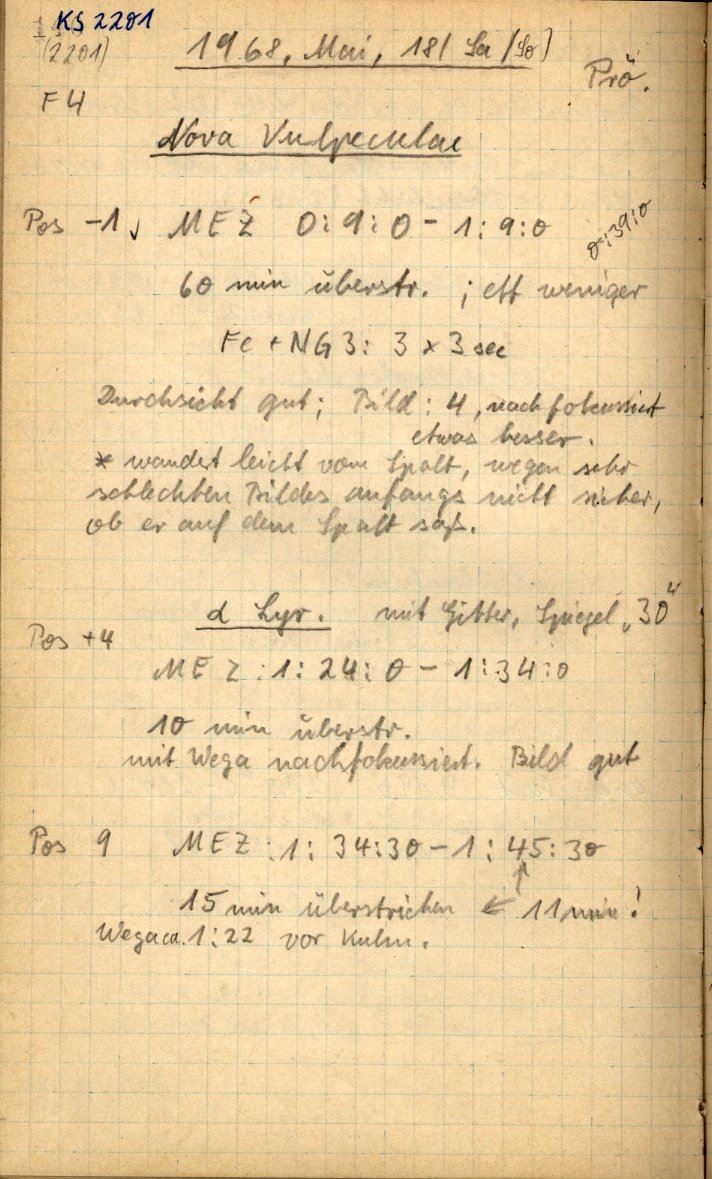 KS 2201
(2201)
1968, Mai, 18/ Sa /So)
Prö.
F4
Nova Vulpeculae
Pos -1, MEZ 0:9:0 - 1:9:0
0:39:0
60 min überstr. ; eff weniger
Fe + NG 3: 3 x 3 sec
Durchsicht gut; Bild: 4, nachfokussiert
etwas besser.
* wandert leicht vom Spalt, wegen sehr
schlechten Bildes anfangs nicht sicher,
ob er auf dem Spalt saß.
α Lyr. mit Gitter, Spiegel „30"
Pos +4
MEZ : 1:24:0 - 1:34:0
10 min überstr.
mit Wega nachfokussiert. Bild gut
Pos 9 MEZ : 1:34:30 - 1:45:30
↑
15 min überstrichen ← 11 min!
Wega ca. 1:22 vor Kulm.